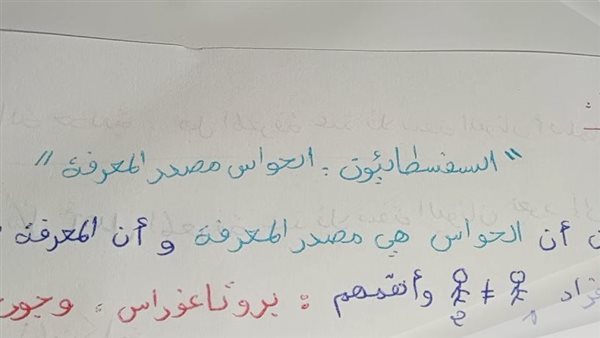 "السفسطائيون : الحواس مصدر المعرفة"
أن الحواس هي مصدر المعرفة و أن المعرفة
1 ≠ 2 وأهمهم : بروتاغوراس ،